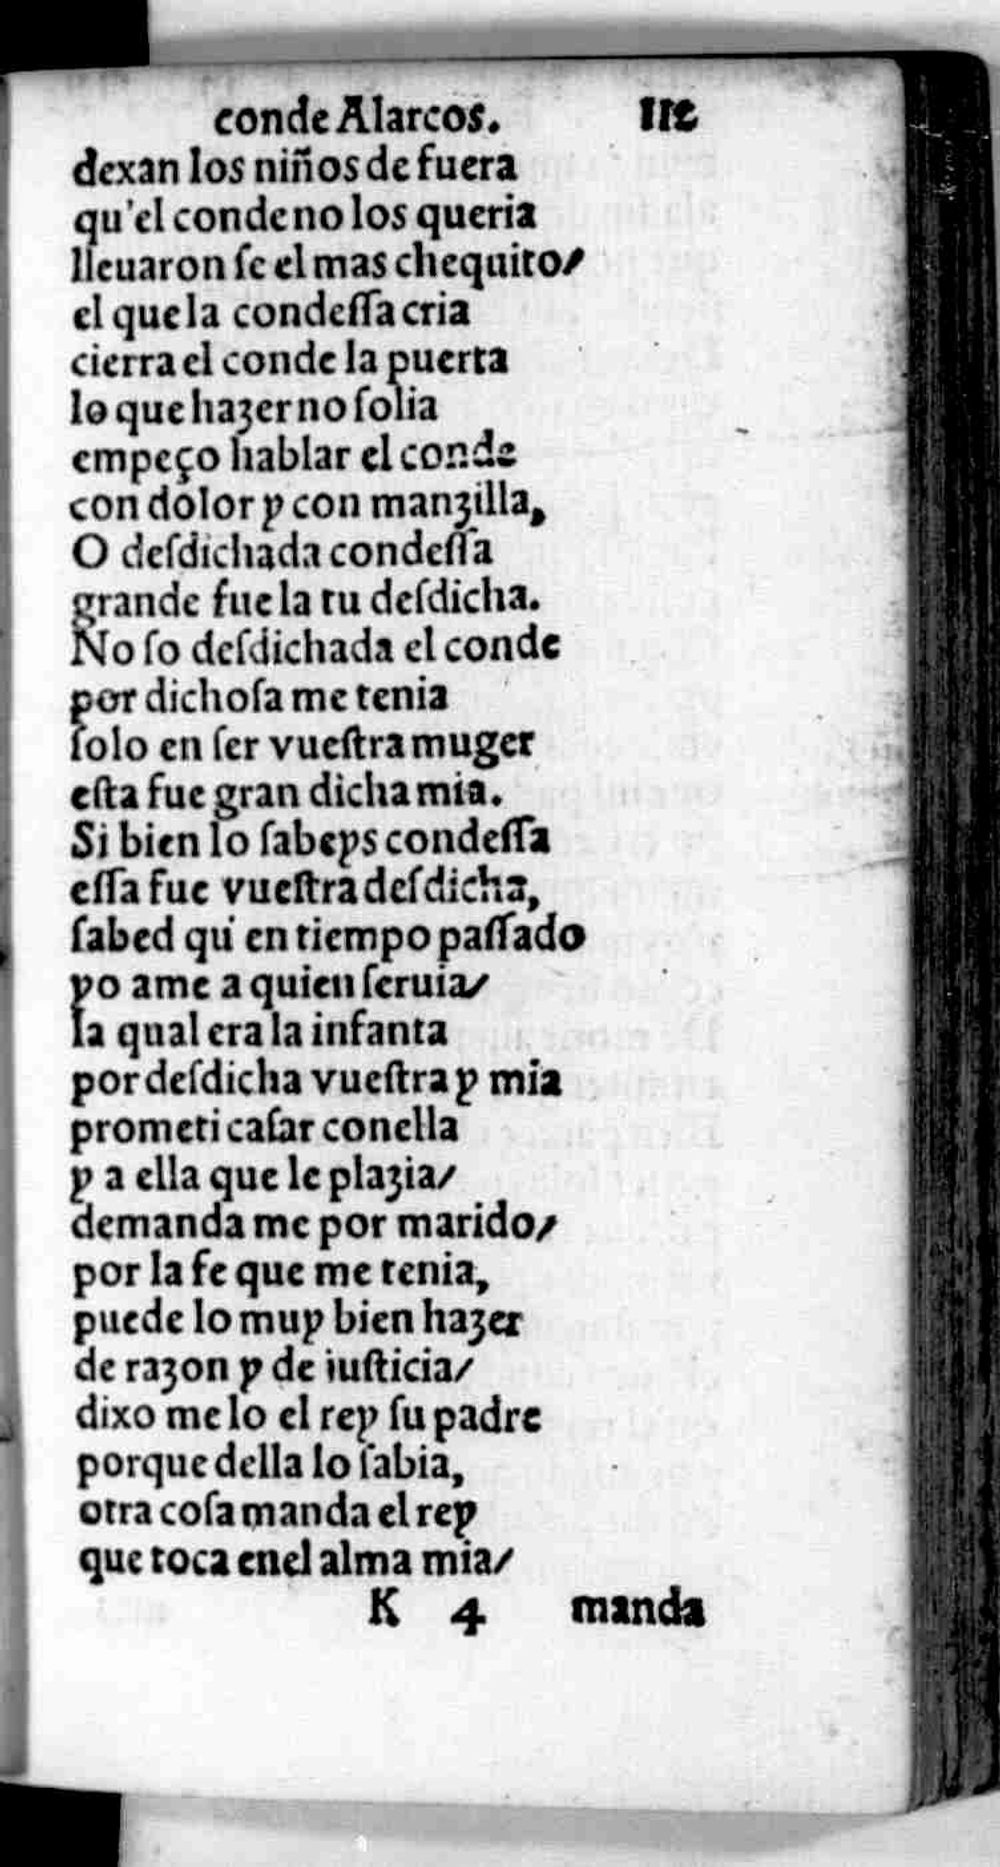 conde Alarcos. 112
dexan los niños de fuera
qu'el conde no los queria
lleuaron se el mas chequito/
el que la condeſſa cria
cierra el conde la puerta
lo que hazer no ſolia
empeço hablar el conde
con dolor y con manzilla,
O deſdichada condeſſa
grande fue la tu deſdicha.
No ſo deſdichada el conde
por dichoſa me tenia
ſolo en ſer vueſtra muger
eſta fue gran dicha mia.
Si bien lo ſabeys condeſſa
eſſa fue vueſtra deſdicha,
ſabed qu' en tiempo paſſado
yo ame a quien ſeruia/
la qual era la infanta
por deſdicha vueſtra y mia
prometi caſar conella
y a ella que le plazia/
demanda me por marido/
por la fe que me tenia,
puede lo muy bien hazer
de razon y de iuſticia/
dixo me lo el rey ſu padre
porque della lo ſabia,
otra coſa manda el rey
que toca enel alma mia/
K 4 manda